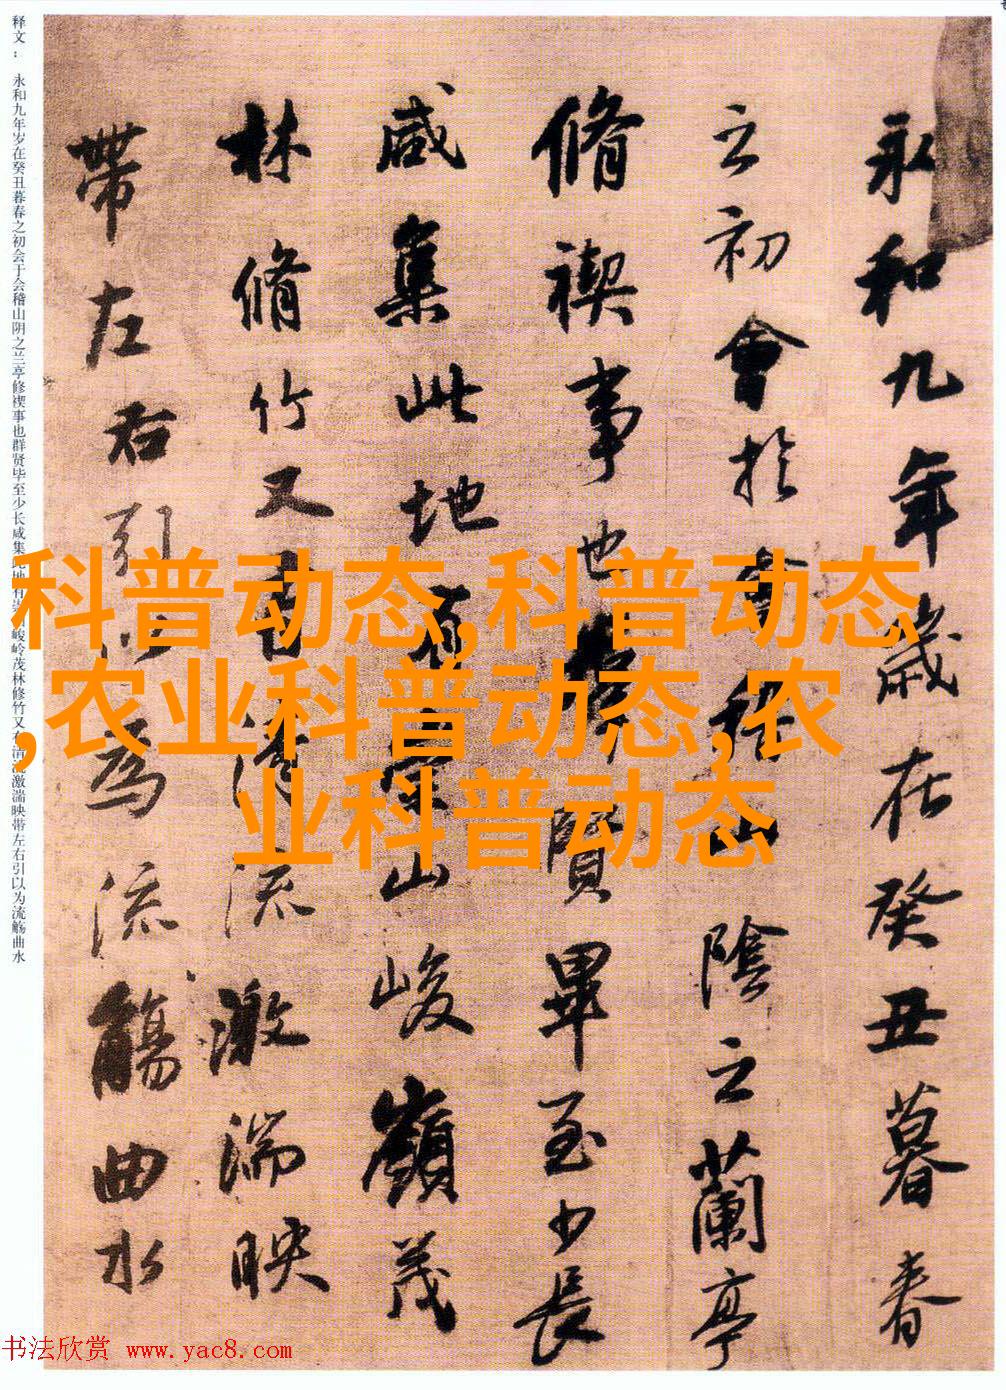 永和九年歲在癸丑暮春
之初會於會稽山陰之蘭亭
脩禊事也群賢畢至少長
咸集此地有崇山峻嶺茂
林脩竹又有清流激湍映
帶左右引以為流觴曲水
释文：永和九年岁在癸丑暮春之初会于会稽山阴之兰亭修禊事也群贤毕至少长咸集此地有崇山峻岭茂林修竹又有清流激湍映带左右引以为流觞曲水
科普动态,科普动态
,农业科普动态,农
业科普动态
书法欣赏 www.yac8.com